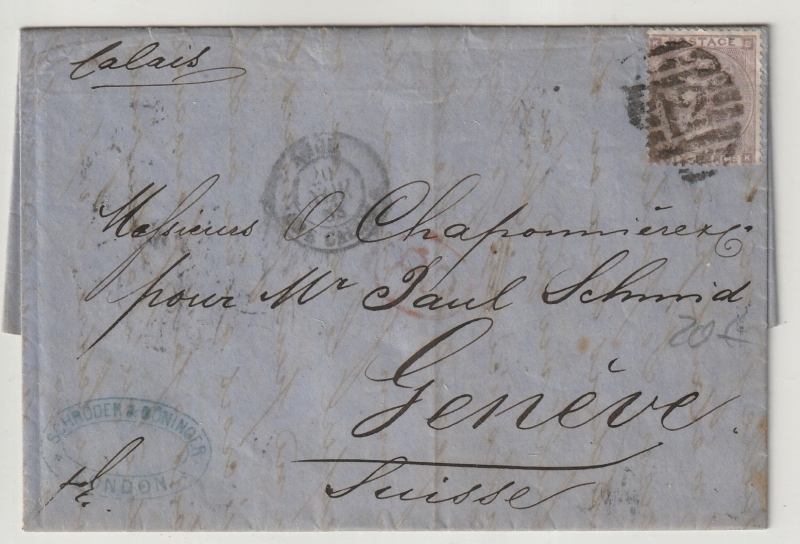 Calais
POSTAGE
12
PENCE
K
Messieurs O Chaponnière & Co
pour Mr Paul Schmid
Genève
Suisse
SCHRÖDER & BÖNINGER
LONDON